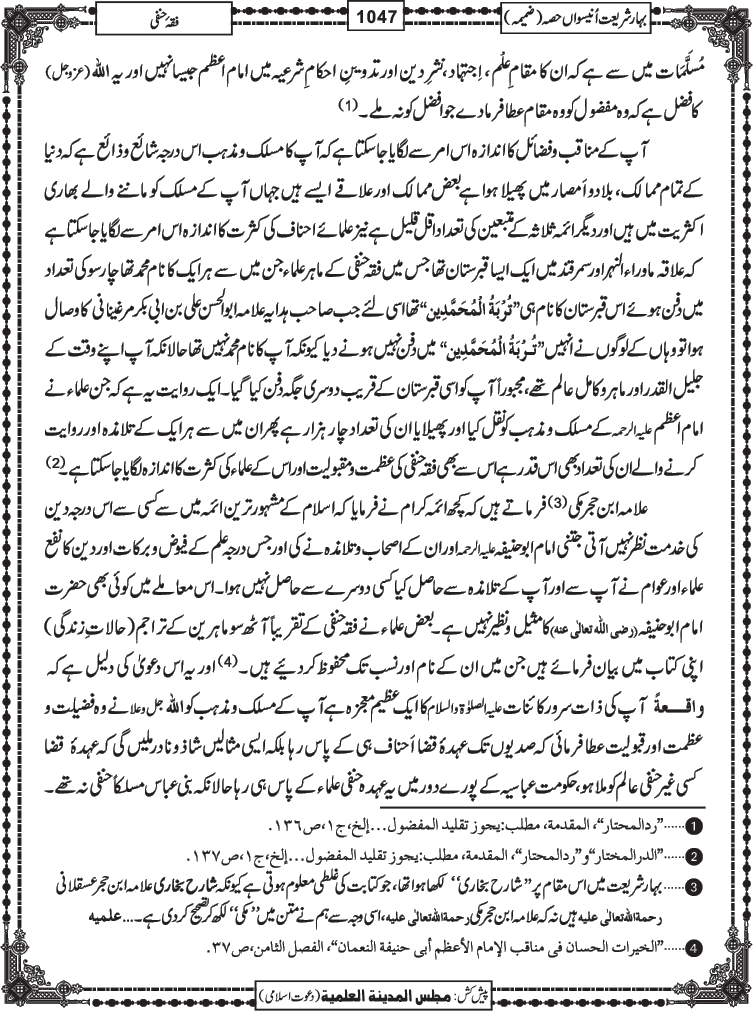 بہارِ شریعت اُنیسواں حصہ (ضمیمہ)
1047
فقۂ حنفی
مُسلَّمَات میں سے ہے کہ ان کا مقامِ عِلْم، اِجتہاد، نشرِ دین اور تدوینِ احکامِ شرعیہ میں امام اعظم جیسا نہیں اور یہ اللہ (عزوجل)
کا فضل ہے کہ وہ مفضول کو وہ مقام عطا فرما دے جو افضل کو نہ ملے۔(1)
آپ کے مناقب و فضائل کا اندازہ اس امر سے لگایا جاسکتا ہے کہ آپ کا مسلک و مذہب اس درجہ شائع و ذائع ہے کہ دنیا
کے تمام ممالک، بلاد و اَمصار میں پھیلا ہوا ہے بعض ممالک اور علاقے ایسے ہیں جہاں آپ کے مسلک کو ماننے والے بھاری
اکثریت میں ہیں اور دیگر ائمہ ثلاثہ کے متبعین کی تعداد اقل قلیل ہے نیز علمائے احناف کی کثرت کا اندازہ اس امر سے لگایا جاسکتا ہے
کہ علاقہ ماوراء النہر اور سمرقند میں ایک ایسا قبرستان تھا جس میں فقہ حنفی کے ماہر علماء جن میں سے ہر ایک کا نام محمد تھا چار سو کی تعداد
میں دفن ہوئے اس قبرستان کا نام ہی ”تُرْبَةُ الْمُحَمَّدِين“ تھا اسی لئے جب صاحب ہدایہ علامہ ابو الحسن علی بن ابی بکر مرغینانی کا وصال
ہوا تو وہاں کے لوگوں نے انہیں ”تُرْبَةُ الْمُحَمَّدِين“ میں دفن نہیں ہونے دیا کیونکہ آپ کا نام محمد نہیں تھا حالانکہ آپ اپنے وقت کے
جلیل القدر اور ماہر و کامل عالم تھے، مجبوراً آپ کو اسی قبرستان کے قریب دوسری جگہ دفن کیا گیا۔ ایک روایت یہ ہے کہ جن علماء نے
امام اعظم علیہ الرحمہ کے مسلک و مذہب کو نقل کیا اور پھیلایا ان کی تعداد چار ہزار ہے پھر ان میں سے ہر ایک کے تلامذہ اور روایت
کرنے والے ان کی تعداد بھی اس قدر ہے اس سے بھی فقہ حنفی کی عظمت و مقبولیت اور اس کے علماء کی کثرت کا اندازہ لگایا جاسکتا ہے۔(2)
علامہ ابن حجر مکی(3) فرماتے ہیں کہ کچھ ائمہ کرام نے فرمایا کہ اسلام کے مشہور ترین ائمہ میں سے کسی سے اس درجہ دین
کی خدمت نظر نہیں آتی جتنی امام ابو حنیفہ علیہ الرحمہ اور ان کے اصحاب و تلامذہ نے کی اور جس درجہ علم کے فیوض و برکات اور دین کا نفع
علماء اور عوام نے آپ سے اور آپ کے تلامذہ سے حاصل کیا کسی دوسرے سے حاصل نہیں ہوا۔ اس معاملے میں کوئی بھی حضرت
امام ابو حنیفہ (رضی اللہ تعالٰی عنہ) کا مثیل و نظیر نہیں ہے۔ بعض علماء نے فقہ حنفی کے تقریباً آٹھ سو ماہرین کے تراجم (حالاتِ زندگی)
اپنی کتاب میں بیان فرمائے ہیں جن میں ان کے نام اور نسب تک محفوظ کر دیئے ہیں۔(4) اور یہ اس دعویٰ کی دلیل ہے کہ
واقعةً آپ کی ذات سرورِ کائنات علیہ الصلوٰۃ والسلام کا ایک عظیم معجزہ ہے آپ کے مسلک و مذہب کو اللہ جل وعلا نے وہ فضیلت و
عظمت اور قبولیت عطا فرمائی کہ صدیوں تک عہدۂ قضا اَحناف ہی کے پاس رہا بلکہ ایسی مثالیں شاذ و نادر ملیں گی کہ عہدۂ قضا
کسی غیر حنفی عالم کو ملا ہو، حکومت عباسیہ کے پورے دور میں یہ عہدہ حنفی علماء کے پاس ہی رہا حالانکہ بنی عباس مسلکاً حنفی نہ تھے۔
1......”ردالمحتار“، المقدمة، مطلب: یجوز تقلید المفضول...إلخ، ج١، ص١٣٦.
2......”الدرالمختار“ و ”ردالمحتار“، المقدمة، مطلب: یجوز تقلید المفضول...إلخ، ج١، ص١٣٧.
3......بہارِ شریعت میں اس مقام پر ”شارح بخاری“ لکھا ہوا تھا، جو کتابت کی غلطی معلوم ہوتی ہے کیونکہ شارح بخاری علامہ ابن حجر عسقلانی
رحمة اللہ تعالٰی علیہ ہیں نہ کہ علامہ ابن حجر مکی رحمة اللہ تعالٰی علیہ، اسی وجہ سے ہم نے متن میں ”مکی“ لکھ کر تصحیح کر دی ہے۔...علمیہ
4......”الخیرات الحسان فی مناقب الإمام الأعظم أبی حنیفة النعمان“، الفصل الثامن، ص٣٧.
پیش کش: مجلس المدینة العلمیة (دعوتِ اسلامی)